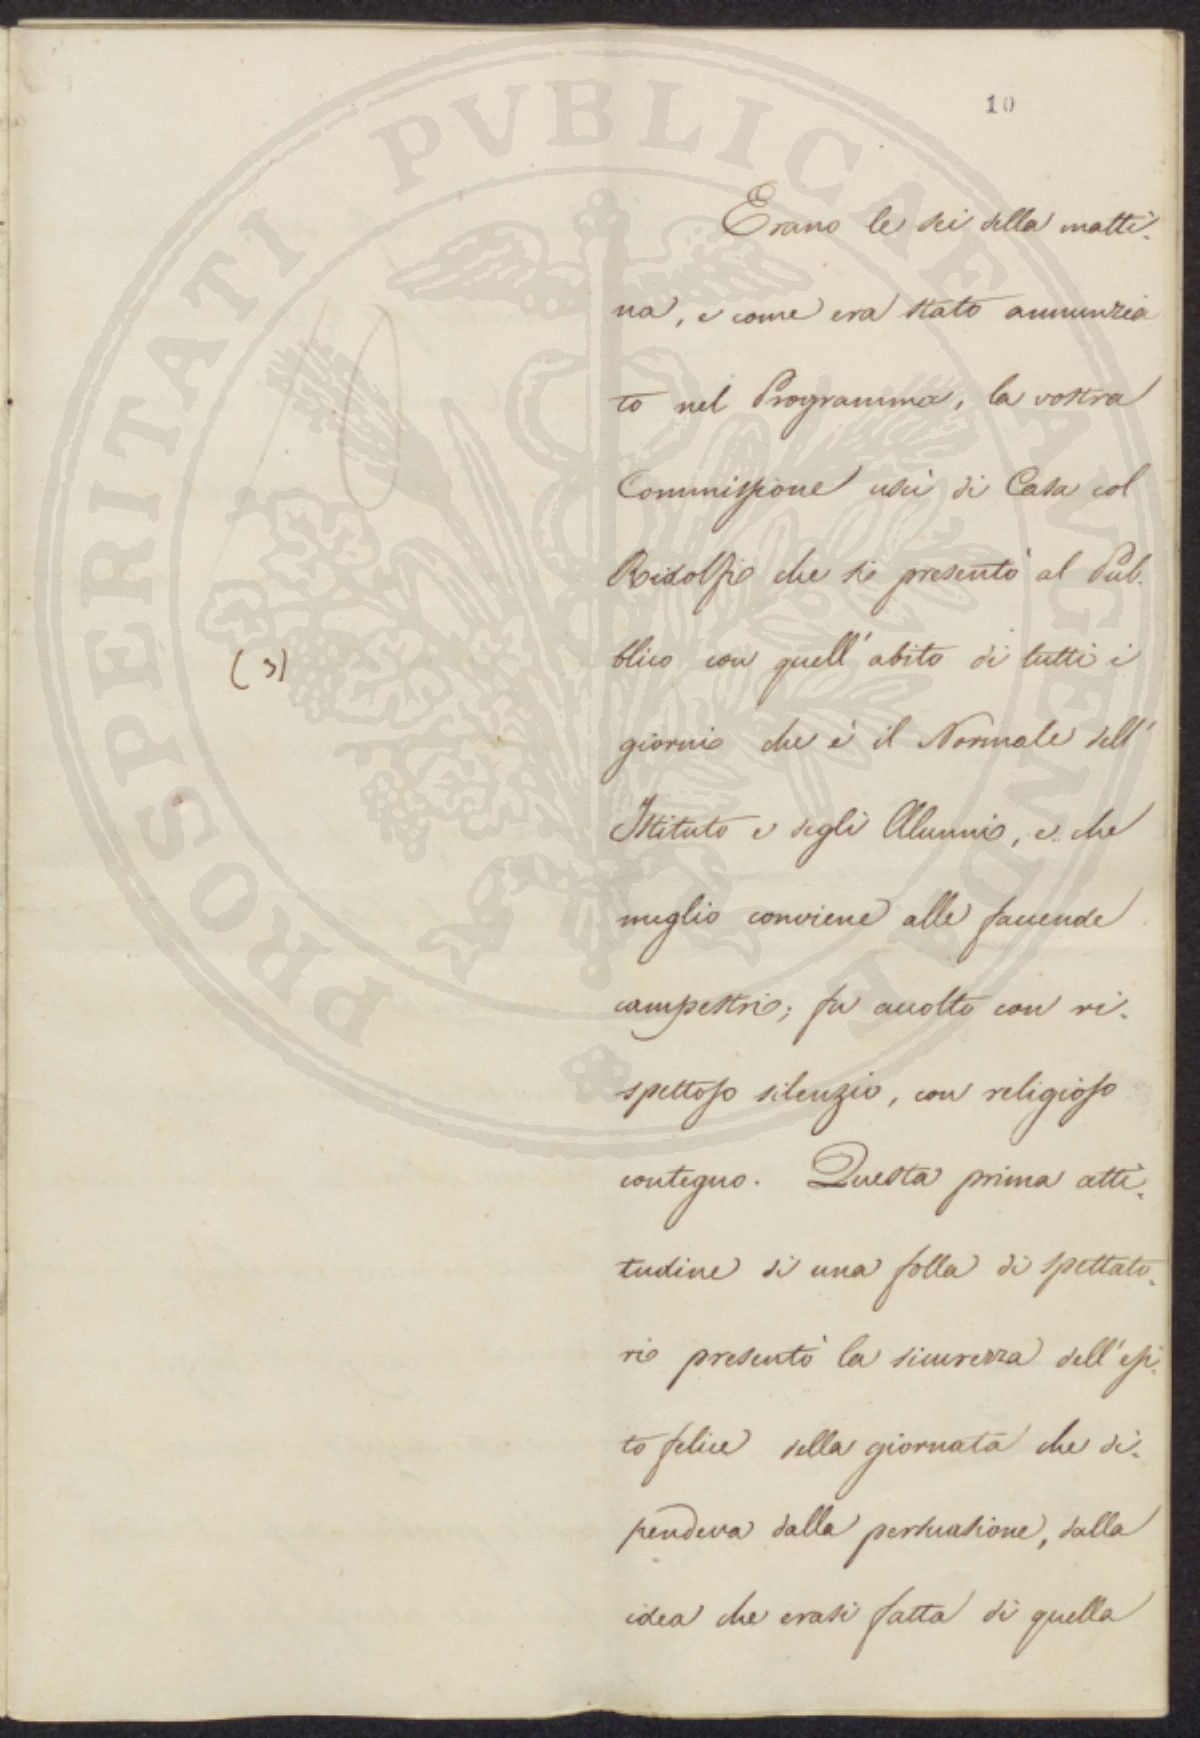 PROSPERITATI PVBLICAE AVGENDAE
10
Erano le sei della matti-
na, e come era stato annunzia
to nel Programma, la vostra
Commissione uscì di Casa col
Ridolfi che si presentò al Pub-
blico con quell'abito di tutti i
giorni che è il Normale dell'
Istituto e degli Alunni, e che
meglio conviene alle faccende
campestri; fu accolto con ri-
spettoso silenzio, con religioso
contegno. Questa prima atti-
tudine di una folla di spettato-
ri presentò la sicurezza dell'esi-
to felice della giornata che di-
pendeva dalla persuasione, dalla
idea che erasi fatta di quella
(3)